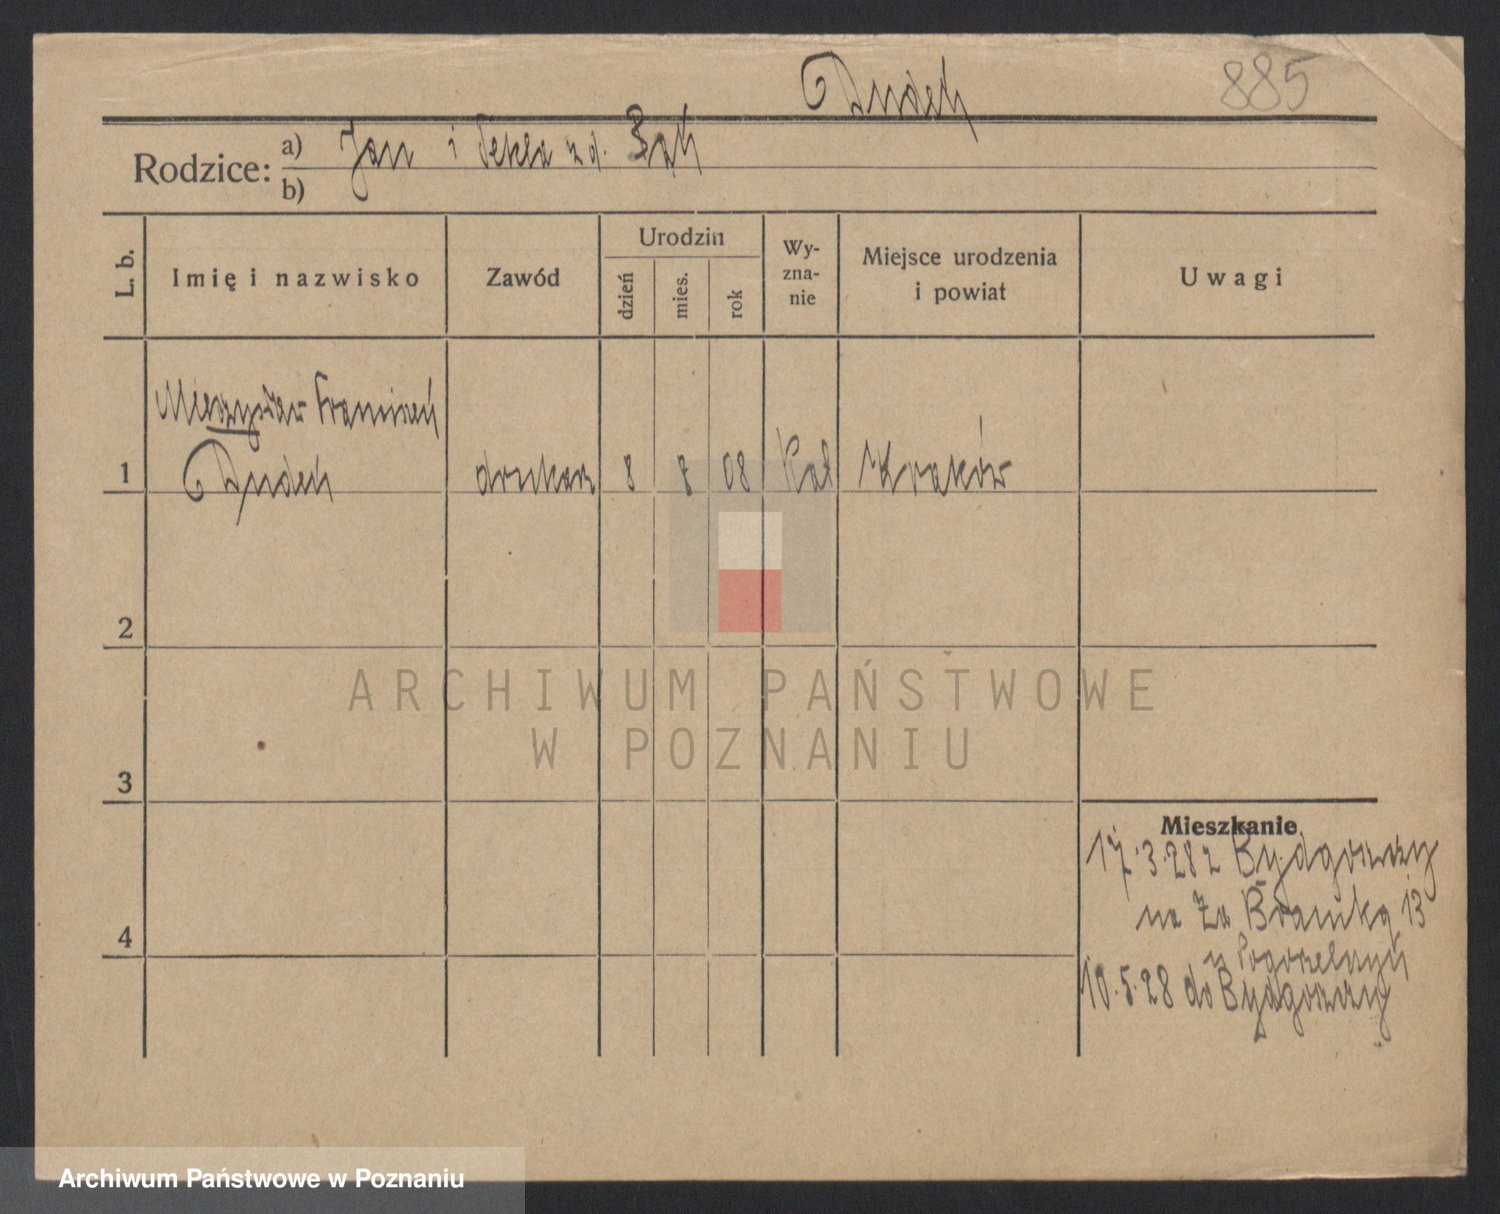 Dudek
885
Rodzice:
a) Jan i Tekla z d. Bąk
b)
L. b.
Imię i nazwisko
Zawód
Urodzin
dzień
mies.
rok
Wy-
zna-
nie
Miejsce urodzenia
i powiat
Uwagi
Mieczysław Franciszek
1 Dudek drukarz 8 8 08 Kat Kraków
2
3
4
Mieszkanie
17.3.28 z Bydgoszczy
na Za Bramką 13
u
10.5.28 do Bydgoszczy
ARCHIWUM PAŃSTWOWE
W POZNANIU
Archiwum Państwowe w Poznaniu